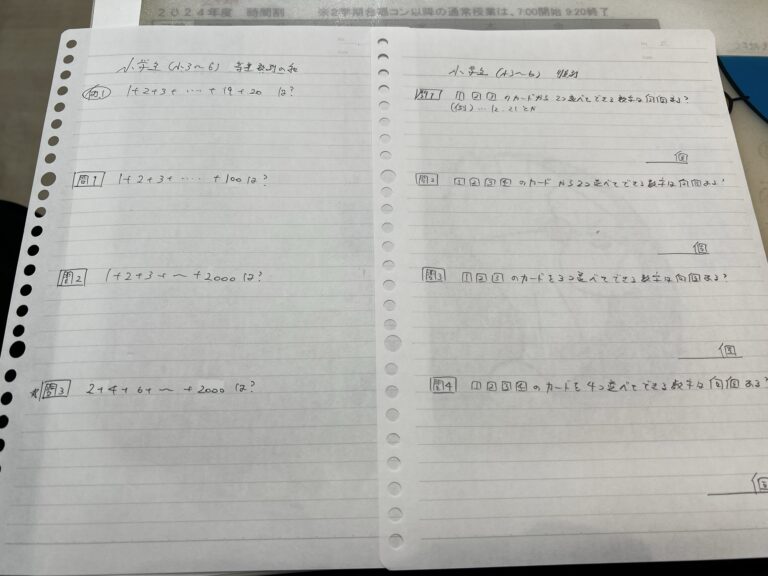 2024年度 時間割 ※2学期合唱コン以降の通常授業は、7:00開始 9:20終了
小学生(小3〜6) 等差数列の和
例1 1+2+3+ ‥‥ +19+20 は?
問1 1+2+3+ ‥‥ +100は?
問2 1+2+3+ 〜 +2000は?
★問3 2+4+6+ 〜 +2000は?
小学生(小3〜6)
問1 1 2 3 のカードから2つ並べてできる数字は何個ある?
(例) … 12, 21とか
個
問2 1 2 3 4 のカードから2つ並べてできる数字は何個ある?
個
問3 1 2 3 のカードを3つ並べてできる数字は何個ある?
個
問4 1 2 3 4 のカードを4つ並べてできる数字は何個ある?
個